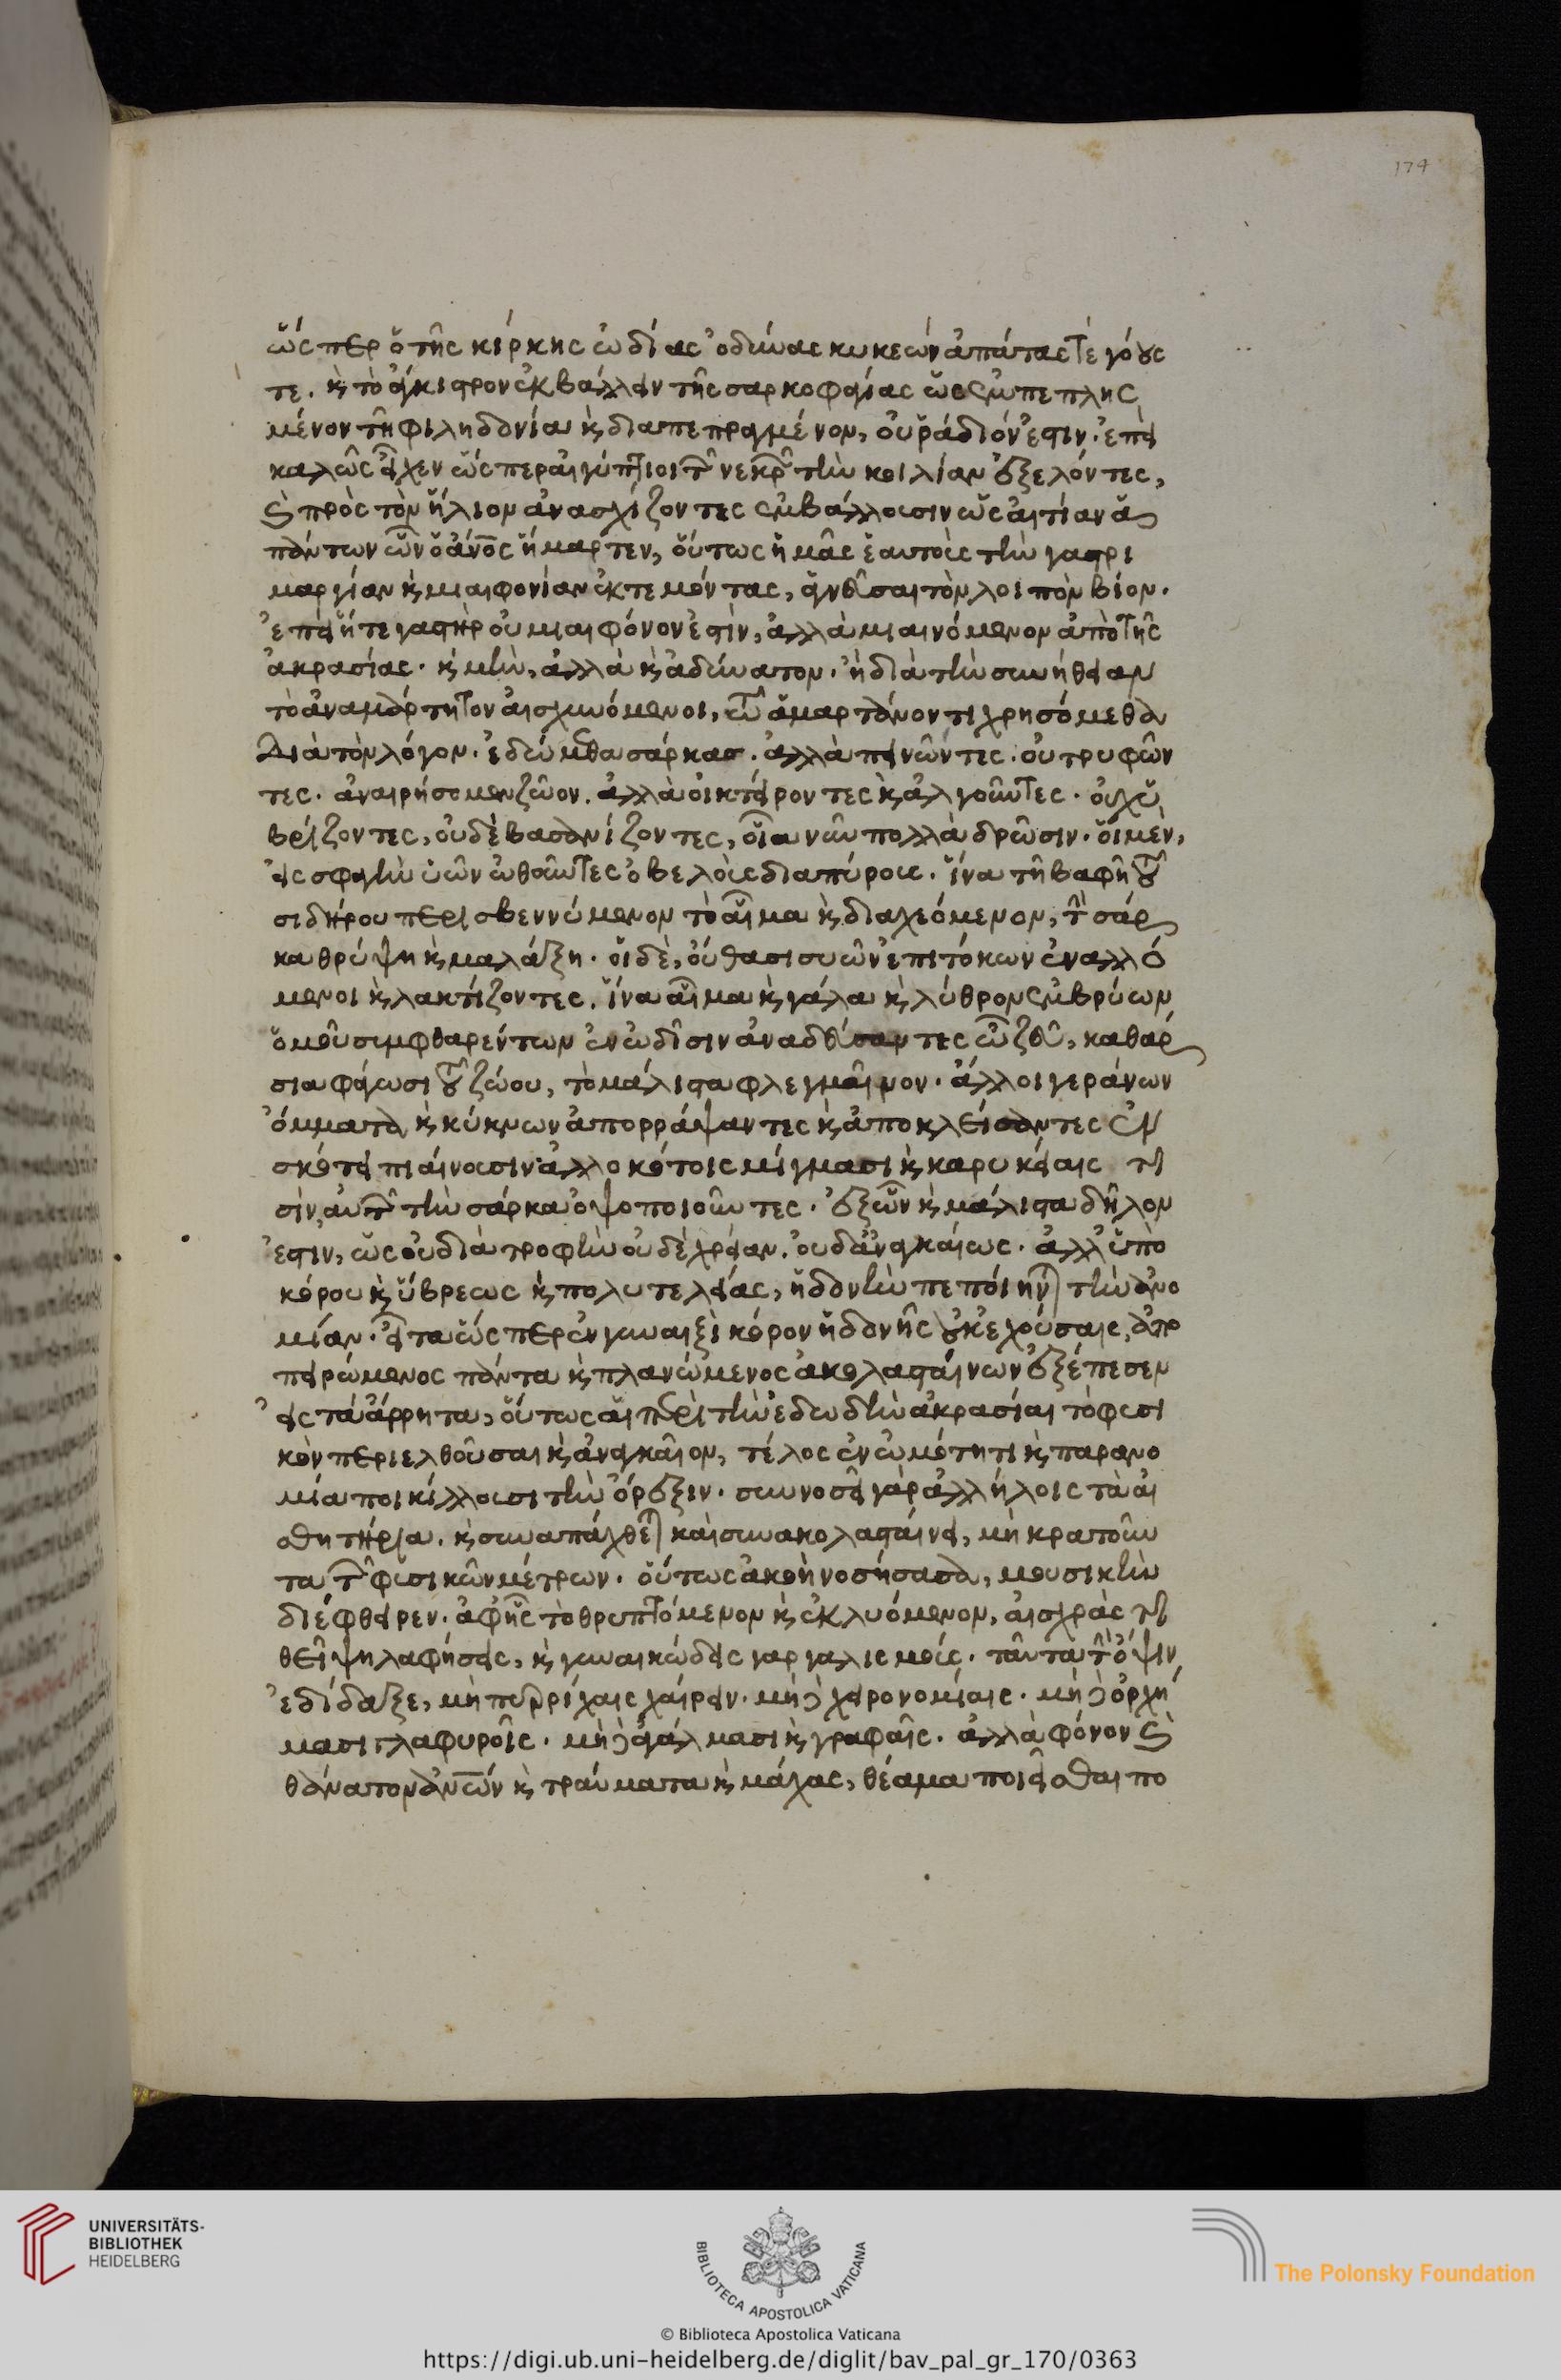 174
ὥς περ ὁ τῆς κίρκης ὠδίνας ὀδύνας κυκεών ἀπάτας τε γόους
τε. καὶ τὸ ἄγκιστρον ἐκβάλλειν τῆς σαρκοφαγίας ὡς ἐμπεπλης
μένον τῆ φιληδονία καὶ διαπεπραγμένον, οὐ ῥάδιόν ἐστιν. ἐπεὶ
καλῶς εἶχεν ὥς περ αἰγύπτιοι τῶν νεκρῶν τὴν κοιλίαν ἐξελόντες,
καὶ πρὸς τὸν ἥλιον ἀνασχίζοντες ἐμβάλλουσιν ὡς αἰτίαν ἁ
πάντων ὧν ὁ ἄνος ἥμαρτεν, οὕτως ἡμᾶς ἑαυτοῖς τὴν γαστρι
μαργίαν καὶ μιαιφονίαν ἐκτεμόντας, ἁγνεῦσαι τὸν λοιπὸν βίον.
ἐπεὶ ἥ τε γαστὴρ οὐ μιαιφόνον ἐστὶν, ἀλλὰ μιαινόμενον ἀπὸ τῆς
ἀκρασίας. καὶ μὴν, ἀλλὰ καὶ ἀδύνατον. ἢ διὰ τὴν συνήθειαν
τὸ ἀναμάρτητον αἰσχυνόμενοι, τῶ ἁμαρτάνοντι χρησόμεθα
Διὰ τὸν λόγον. ἐδεύμεθα σάρκας. ἀλλὰ πεινῶντες. οὐ τρυφῶν
τες. ἀναιρήσομεν ζῶον. ἀλλὰ οἰκτείροντες καὶ ἀλγοῦντες. οὐχ ὑ
βρίζοντες, οὐδὲ βασανίζοντες, οἷα νῦν πολλὰ δρῶσιν. οἱ μὲν,
εἰς σφαγὴν ὑῶν ὠθοῦντες ὀβελοὺς διαπύρους. ἵνα τῆ βαφῆ τοῦ
σιδήρου περισβεννύμενον τὸ αἷμα καὶ διαχεόμενον, τὴν σάρ
κα θρύψη καὶ μαλάξη. οἱ δὲ, οὔθασι συῶν ἐπιτόκων ἐναλλό
μενοι καὶ λακτίζοντες. ἵνα αἷμα καὶ γάλα καὶ λύθρον ἐμβρύων
ὁμοῦ συμφθαρέντων ἐν ὠδῖσιν ἀναδεύσαντες ὦ ζεῦ, καθάρ
σια φάγωσι τοῦ ζώου, τὸ μάλιστα φλεγμαῖνον. ἄλλοι γεράνων
ὄμματα καὶ κύκνων ἀπορράψαντες καὶ ἀποκλείσαντες ἐν
σκότει πιαίνουσιν ἀλλοκότοις μίγμασι καὶ καρυκείαις τι
σὶν, αὐτῶν τὴν σάρκα ὀψοποιοῦντες. ἐξ ὧν καὶ μάλιστα δῆλον
ἐστιν, ὡς οὐ διὰ τροφὴν οὐδὲ χρείαν. οὐδ' ἀναγκαίως. ἀλλ' ὑπὸ
κόρου καὶ ὕβρεως καὶ πολυτελείας, ἡδονὴν πεποίηνται τὴν ἀνο
μίαν. εἶτα ὥς περ ἐν γυναιξὶ κόρον ἡδονῆς οὐκ ἐχούσαις, ἀπο
πειρώμενος πάντα καὶ πλανώμενος ἀκολασταίνων ἐξέπεσεν
εἰς τὰ ἄρρητα, οὕτως αἱ περὶ τὴν ἐδωδὴν ἀκρασίαι τὸ φυσι
κὸν περιελθοῦσαι καὶ ἀναγκαῖον, τέλος ἐν ὠμότητι καὶ παρανο
μία ποικίλλουσι τὴν ὄρεξιν. συννοσεῖ γὰρ ἀλλήλοις τὰ αἰ
σθητήρια. καὶ συναπάχθεται καὶ συνακολασταίνει, μὴ κρατοῦν
τα τῶν φυσικῶν μέτρων. οὕτως ἀκοὴ νοσήσασα, μουσικὴν
διέφθειρεν. ἀφ' ἧς τὸ θρυπτόμενον καὶ ἐκλυόμενον, αἰσχρὰς πο
θεῖ ψηλαφήσεις, καὶ γυναικώδεις γαργαλισμούς. ταῦτα τὴν ὄψιν
ἐδίδαξε, μὴ πυρρίχαις χαίρειν. μὴ δὲ χειρονομίαις. μὴ δὲ ὀρχή
μασι γλαφυροῖς. μὴ δὲ ἀγάλμασι καὶ γραφαῖς. ἀλλὰ φόνον καὶ
θάνατον ἀνων καὶ τραύματα καὶ μάχας, θέαμα ποιεῖσθαι πο
UNIVERSITÄTS-
BIBLIOTHEK
HEIDELBERG
BIBLIOTECA APOSTOLICA VATICANA
The Polonsky Foundation
© Biblioteca Apostolica Vaticana
https://digi.ub.uni-heidelberg.de/diglit/bav_pal_gr_170/0363